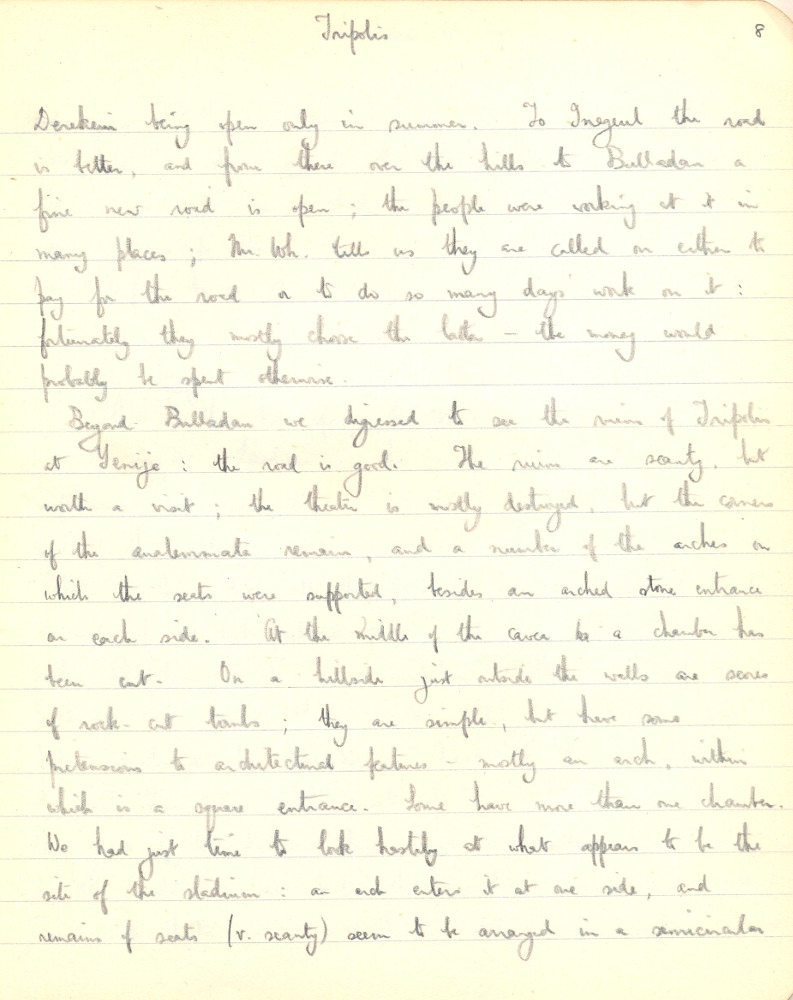 Tripolis
8
Derekein being open only in summer. To Inegeul the road
is better, and from there over the hills to Bulladan a
fine new road is open ; the people were working at it in
many places ; Mr. Wh. tells us they are called on either to
pay for the road or to do so many days' work on it :
fortunately they mostly choose the latter – the money would
probably be spent otherwise.
Beyond Bulladan we digressed to see the ruins of Tripolis
at Yenije : the road is good. The ruins are scanty, but
worth a visit ; the theatre is mostly destroyed, but the corners
of the analemmata remain, and a number of the arches on
which the seats were supported, besides an arched stone entrance
on each side. At the middle of the cavea a chamber has
been cut. On a hillside just outside the walls are scores
of rock-cut tombs ; they are simple, but have some
pretensions to architectural features – mostly an arch, within
which is a square entrance. Some have more than one chamber.
We had just time to look hastily at what appears to be the
site of the stadium : an arch enters it at one side, and
remains of seats (v. scanty) seem to be arranged in a semicircular